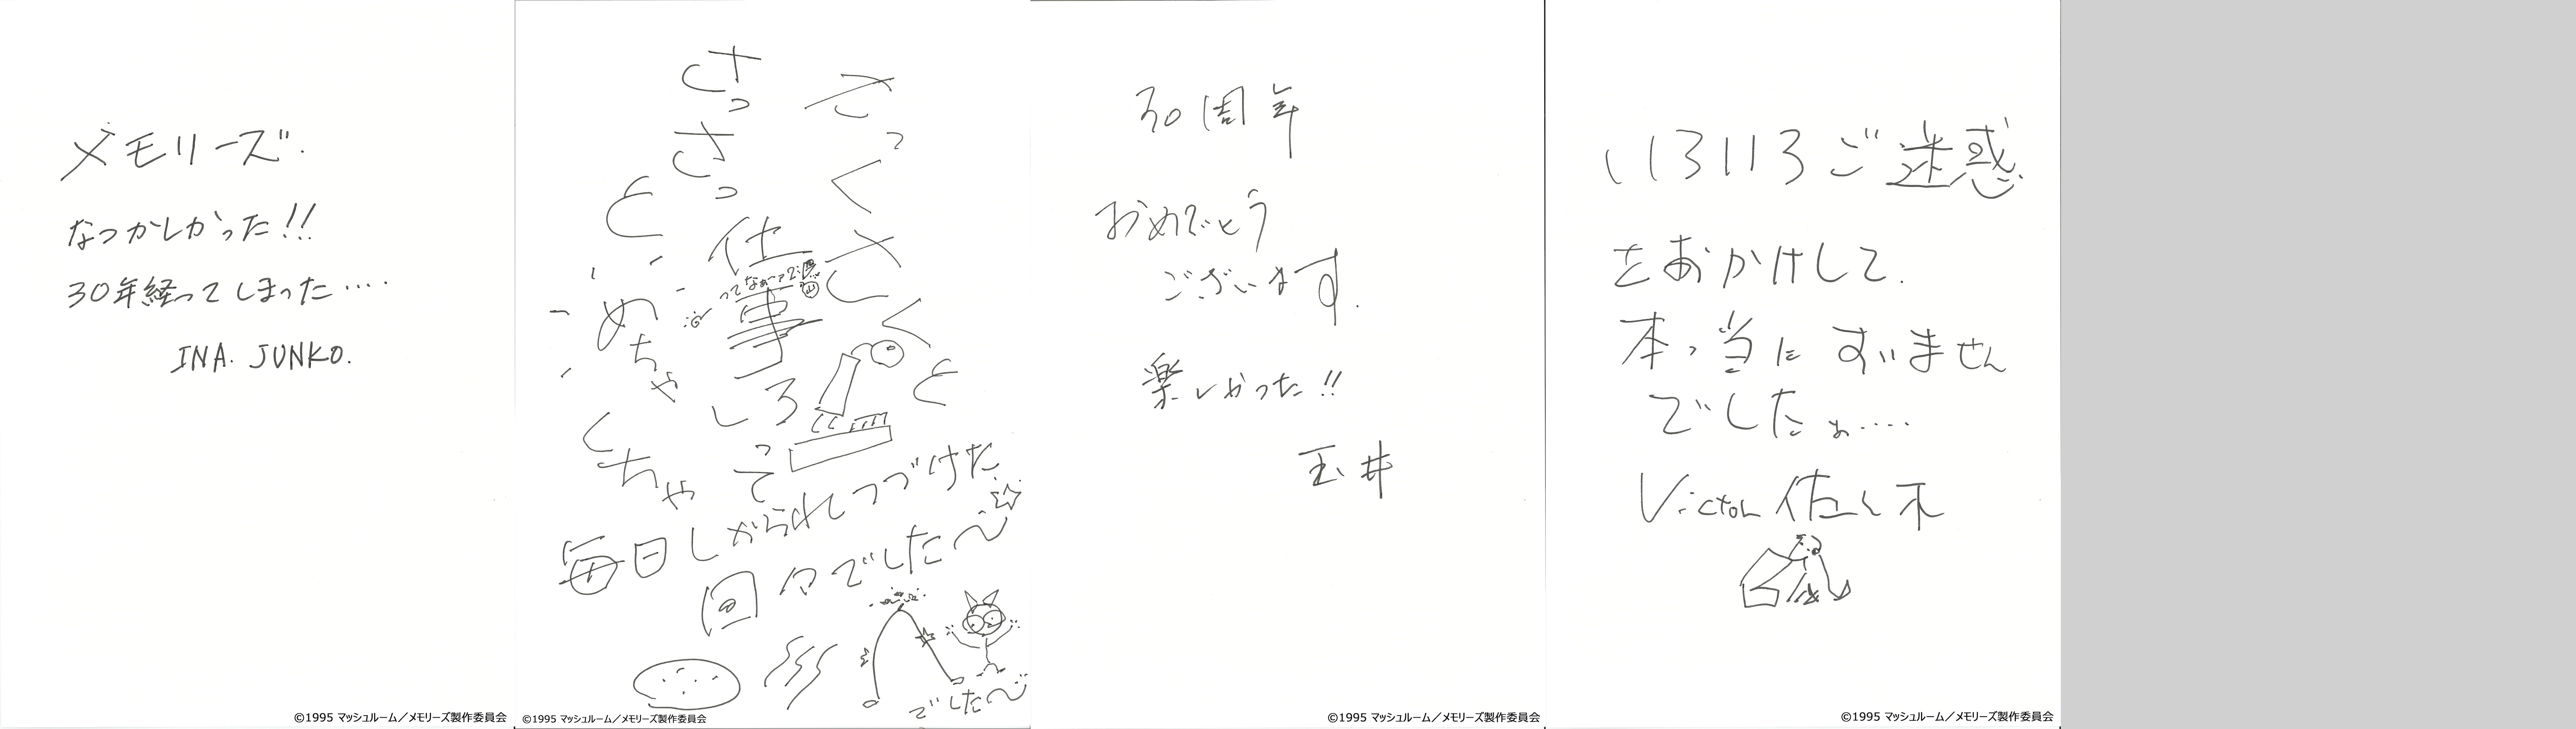 メモリーズ.
なつかしかった!!
30年経ってしまった‥‥
INA. JUNKO.
©1995 マッシュルーム／メモリーズ製作委員会
さっくさくと
さっさっ
仕事しろって
と
めちゃくちゃ
毎日しかられつづけた
回々でした〜☆
でした〜
©1995 マッシュルーム／メモリーズ製作委員会
30周年
おめでとう
ございます.
楽しかった!!
玉井
©1995 マッシュルーム／メモリーズ製作委員会
いろいろご迷惑
をおかけして.
本っ当にすいません
でしたぉ‥‥
Victor 佐々木
©1995 マッシュルーム／メモリーズ製作委員会